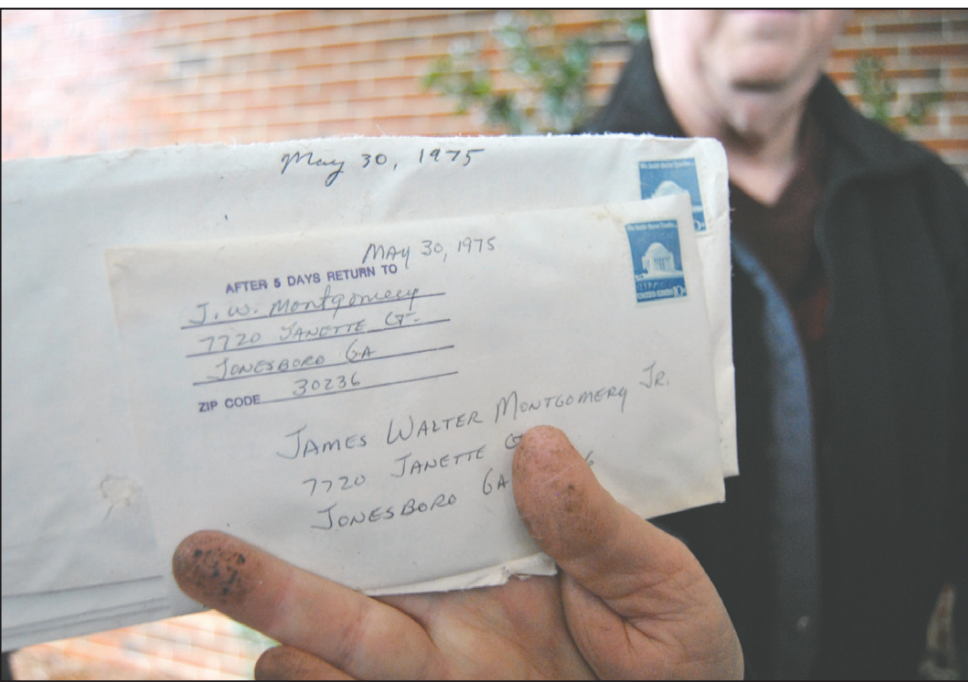 May 30, 1975
MAY 30, 1975
AFTER 5 DAYS RETURN TO
J. W. Montgomery
7720 JANETTE CT.
JONESBORO GA
ZIP CODE 30236
JAMES WALTER MONTGOMERY JR.
7720 JANETTE
JONESBORO GA